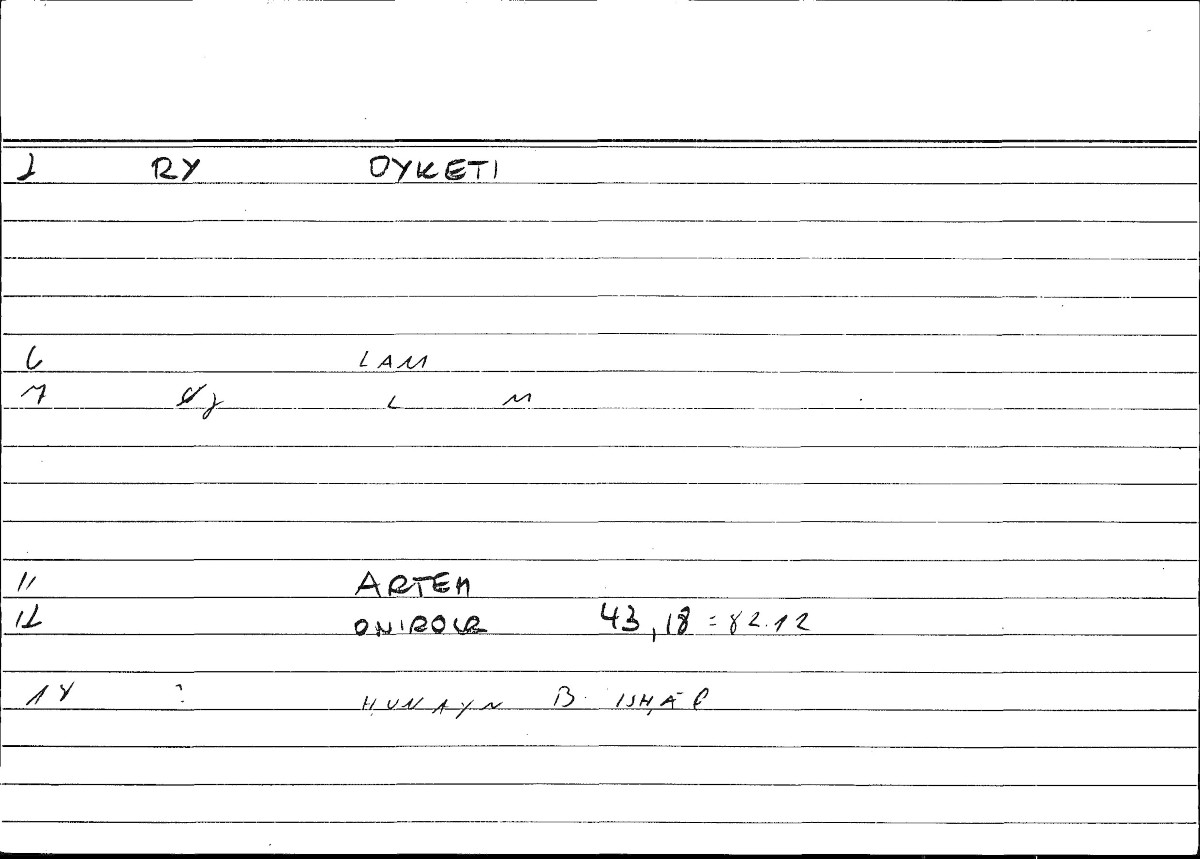 1 RY OYKETI
6 LAM
7 L M
11 ARTEM
12 ONIROCR 43,18 = 82.12
18 ? ḤUNAYN B. ISḤĀQ